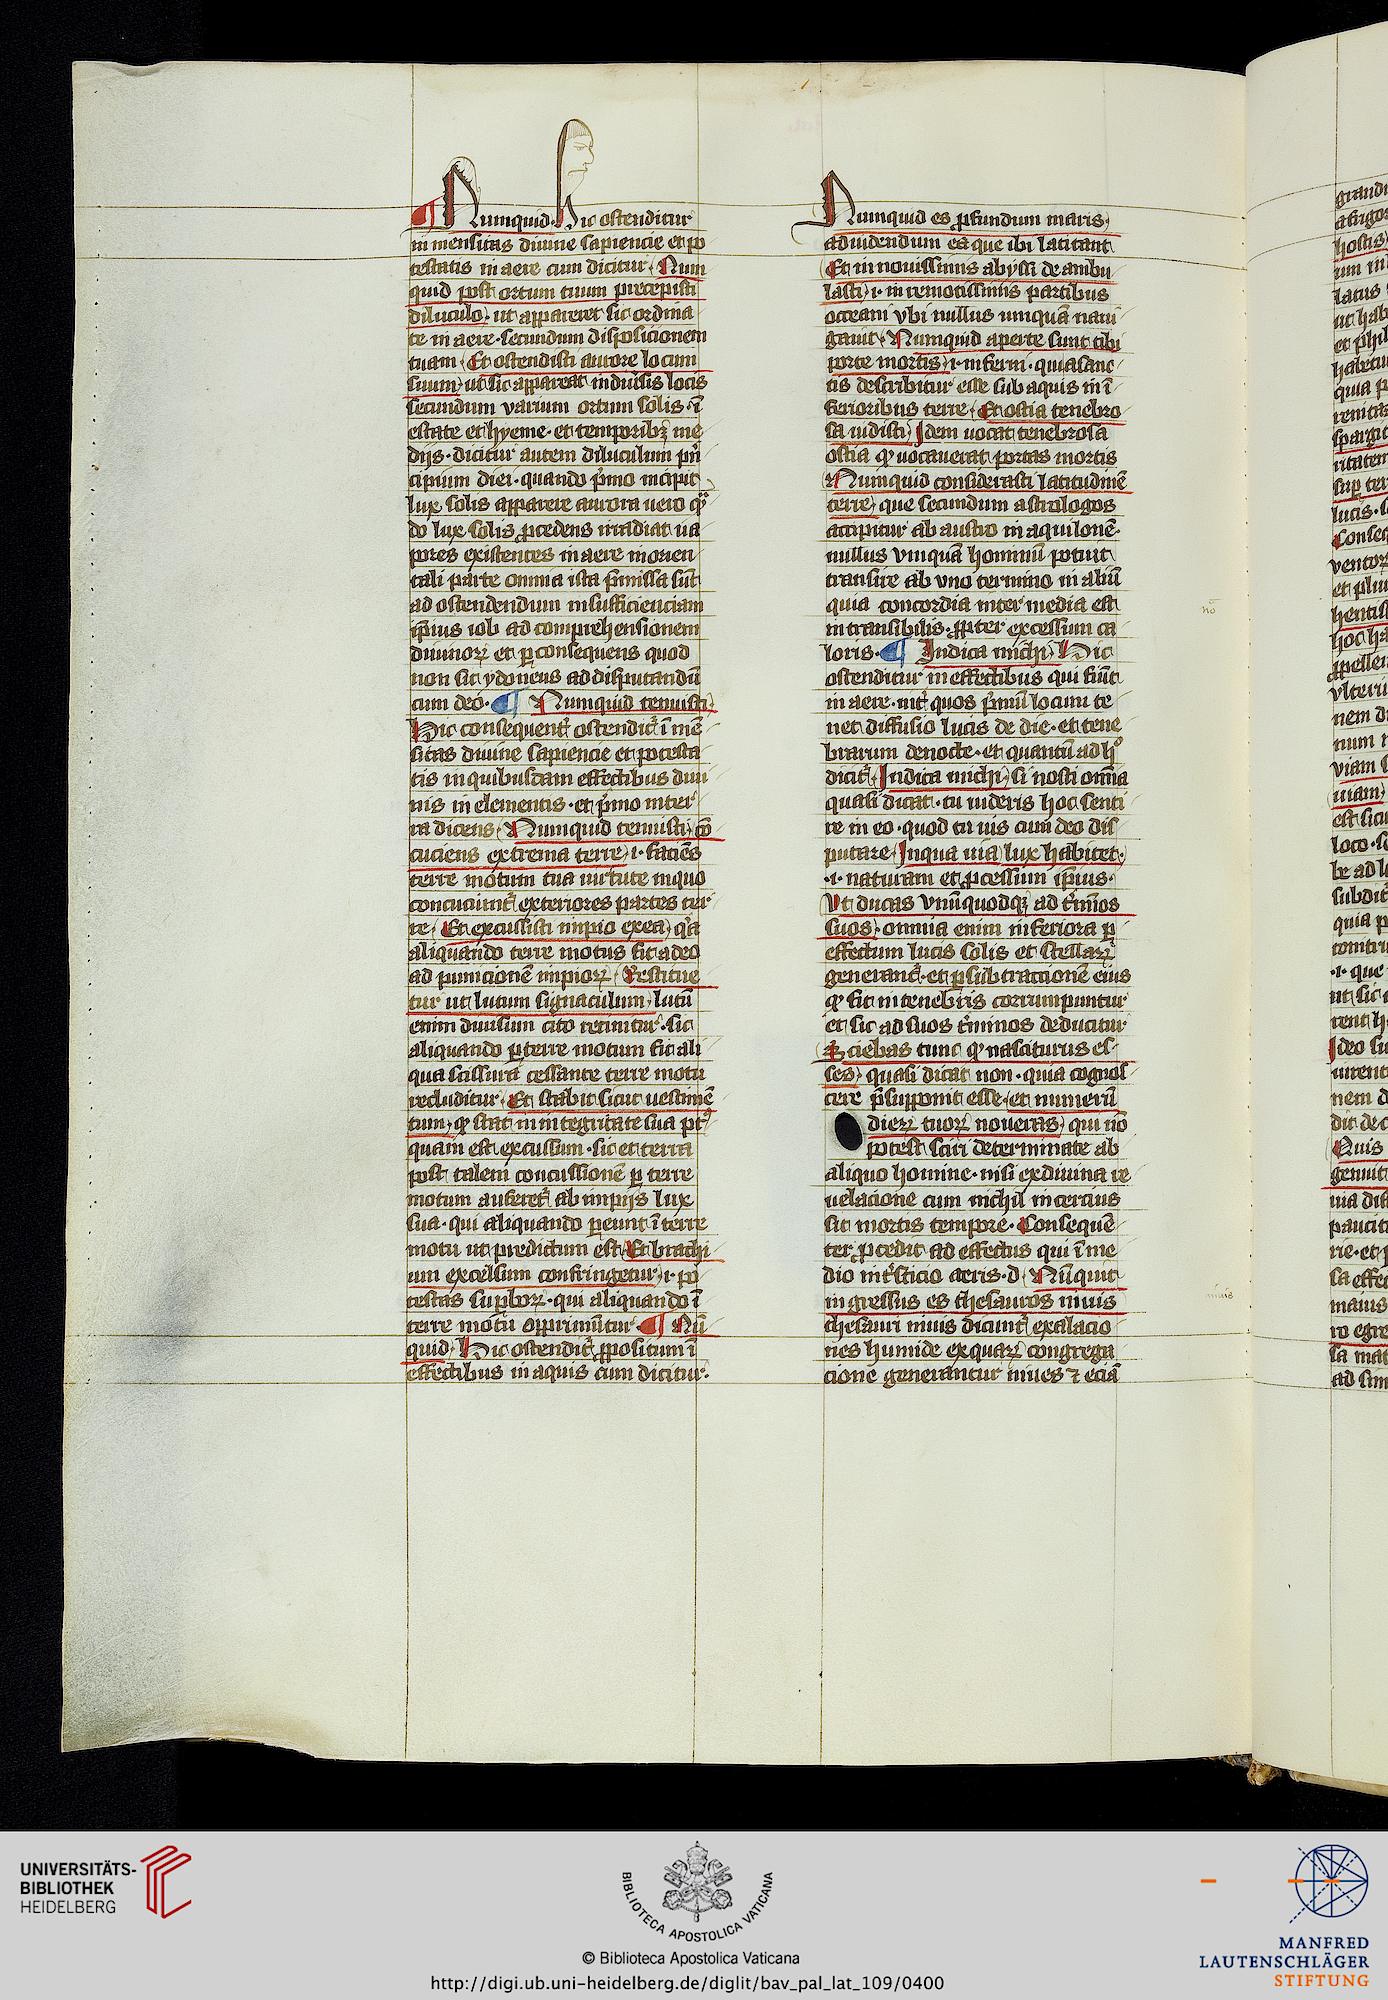 ¶ Numquid. Hic ostenditur
in mensitas diuine sapiencie et po
testatis in aere cum dicitur. Num
quid post ortum tuum precepisti
diluculo. ut appareret sic ordina
te in aere. secundum disposicionem
tuam. Et ostendisti aurore locum
suum. ut sic appareat in diuersis locis
secundum varium ortum solis. ī
estate et hyeme. et temporibꝫ me
dijs. dicitur autem diluculum prin
cipium diei. quando pͥmo incipit
lux solis apparere aurora uero qn̄
do lux solis ꝓcedens irradiat ua
pores existentes in aere in orien
tali parte omnia ista pͥmissa sūt
ad ostendendum insufficienciam
ip̄ius iob ad comprehensionem
diuinoꝝ et ꝑ consequens quod
non sit ydoneus ad disputandū
cum deo. ¶ Numquid tenuisti
Hic consequent̄ ostendit̄ ī mē
sitas diuine sapiencie et potesta
tis in quibusdam effectibus diui
nis in elementis. et pͥmo in ter
ra dicens. Numquid tenuisti cō
cuciens extrema terre .i. faciēs
terre motum tua uirtute in quo
concuciunt̄ exteriores partes ter
re. Et excussisti impio ex ea qͥa
aliquando terre motus fit a deo
ad punicionē impioꝝ. Restitue
tur ut lutum signaculum lutū
enim diuisum cito reunitur. sic
aliquando ꝑ terre motum fit ali
qua scissura cessante terre motu
recluditur. Et stabit sicut uestimē
tum. qͦ stat in integritate sua pͥ
quam est excussum. sic et terra
post talem concussionē ꝑ terre
motum auferet̄ ab impijs lux
sua. qui aliquando ꝑeunt ī terre
motu ut predictum est. Et brachi
um excelsum confringetur .i. po
testas suꝑboꝝ. qui aliquando ī
terre motu opprimūtur ¶ Nū
quid. Hic ostendit̄ ꝓpositum ī
effectibus in aquis cum dicitur.
Numquid es ꝓfundum maris.
ad uidendum ea que ibi latitant
Et in nouissimis abyssi deambu
lasti .i. in remotissimis partibus
occeani vbi nullus umquā naui
gauit. Numquid aperte sunt tibi
porte mortis .i. inferni. quia sanc
tis describitur esse sub aquis in ī
ferioribus terre. Et ostia tenebro
sa uidisti. Idem uocat tenebrosa
ostia qͦ uocauerat portas mortis
Numquid considerasti latitudinē
terre. que secundum astrologos
accipitur ab austro in aquilonē.
nullus vmquā hominū potuit
transire ab vno termino in aliū
quia concordia inter media est
in transibilis. ꝓpter excessum ca
loris. ¶ Indica michi. Hic
ostenditur in effectibus qui fiūt
in aere. int̄ quos pͥmū locum te
net diffusio lucis de die. et tene
brarum de nocte. et quantū ad hͦ
dicit̄. Indica michi si nosti omnia
quasi dicat. tu uideris hoc senti
re in eo. quod tu uis cum deo dis
putare. In qua uia lux habitet.
.i. naturam et ꝓcessum ip̄ius.
Ut ducas vnūquodqꝫ ad t̄minos
suos. omnia enim inferiora ꝑ
effectum lucis solis et stellaꝝ
generant̄. et ꝑ subtractionē eius
qͦ fit in tenebris corrumpuntur
et sic ad suos t̄minos deducitur
Sciebas tunc qͦ nasciturus es
ses. quasi dicat non. quia cognos
cere p̄supponit esse. et numerū
dieꝝ tuoꝝ noueras. qui nō
potest sciri determinate ab
aliquo homine. nisi ex diuina re
uelacione cum nichil incercius
sit mortis tempore. Consequē
ter ꝓcedit ad effectus qui ī me
dio int̄sticio aeris. d. Nūquit
in gressus es thesauros niuis
thesauri niuis dicunt̄ exalacio
nes humide ex quaꝝ congrega
cione generantur niues ⁊ eciā
nō
niuis
UNIVERSITÄTS-
BIBLIOTHEK
HEIDELBERG
BIBLIOTECA APOSTOLICA VATICANA
© Biblioteca Apostolica Vaticana
http://digi.ub.uni-heidelberg.de/diglit/bav_pal_lat_109/0400
MANFRED
LAUTENSCHLÄGER
STIFTUNG